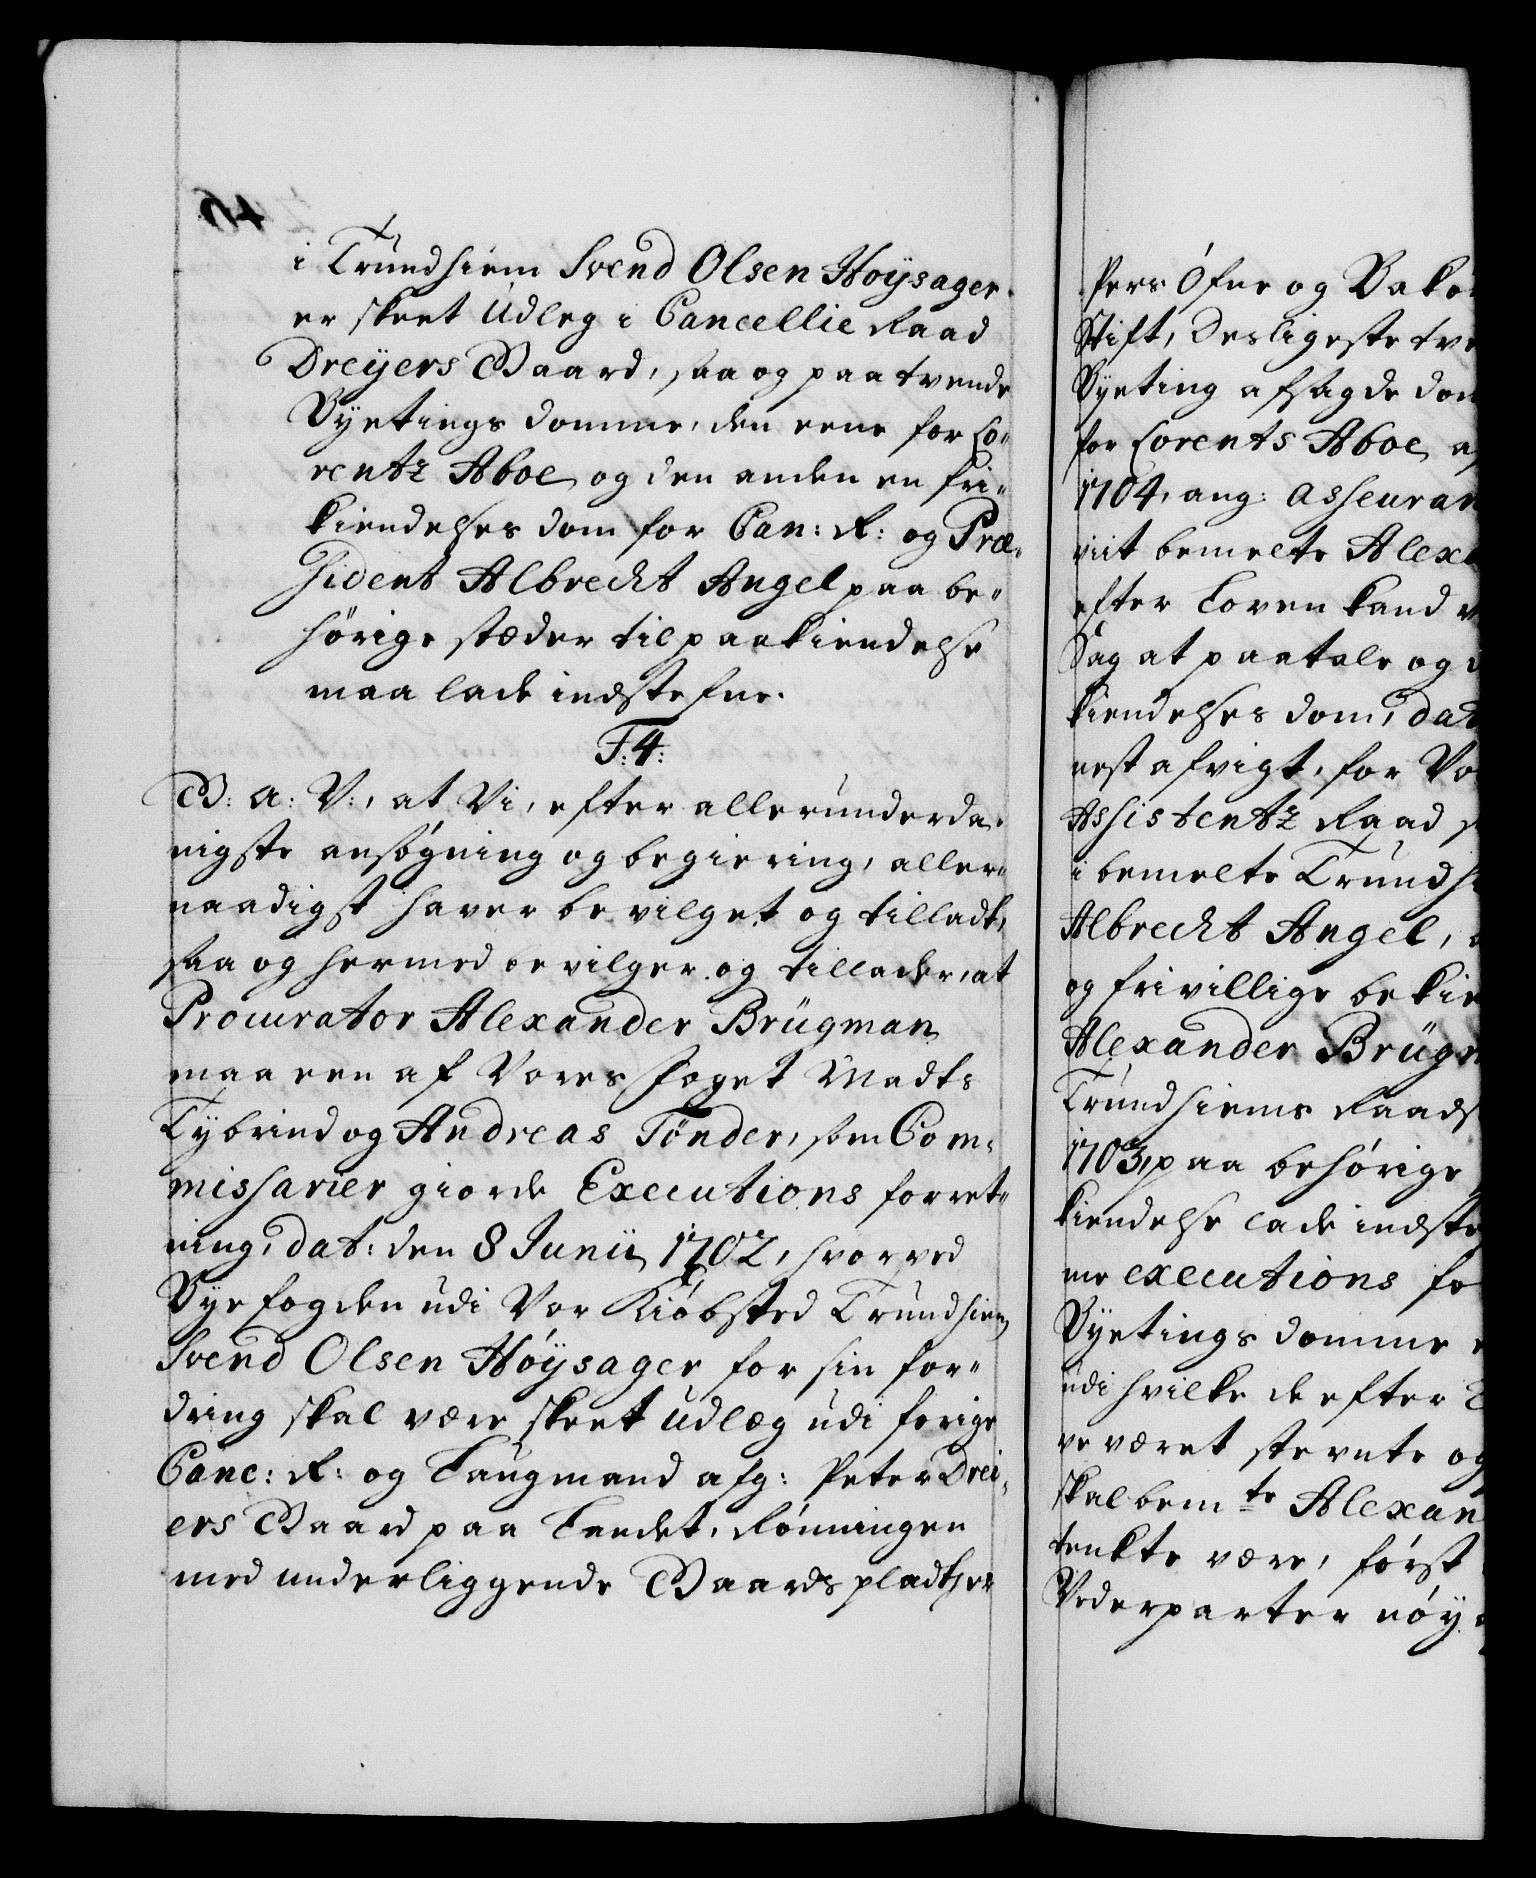 i Trundhiem Svend Olsen Høysager
er skeet Udleg i Cancellie Raad
Dreyers Gaard, saa og paa tvende
Byetings domme, den eene for Lo-
rentz Aboe, og den anden en fri-
kiendelses dom for Can: R: og Præ-
sident Albrecht Angel paa be-
hørige stæder til paakiendelse
maa lade indstefne.
F: 4:
G: A: V:, at Vi, efter allerunderda-
nigste ansøgning og begiering, aller-
naadigst haver bevilget og tilladt,
saa og hermed bevilger og tillader, at
Procurator Alexander Brügman
maa een af Vores foget Madts
Tybrind og Andreas Tønder, som Com-
missarier giorde Executions forret-
ning, dat: den 8 Junii 1702, hvorved
Byefogden udi Vor Kiøbsted Trundhiem
Svend Olsen Høysager for sin for-
dring skal være skeet Udlæg udi forige
Canc: R: og Laugmand afg: Peter Drei-
ers Gaard paa Landet, Rønningen
med underliggende Gaards pladtzer
Pers Øfne og Bakke
Stift, Desligeste tve
Byeting afsagde dom
for Lorents Aboe, af
1704, ang: Asseuran
viit bemelte Alexa
efter Loven kand v
Sag at paatale og d
kiendelses dom, dat
nest afvigt, for Vo
Assistentz Raad s
i bemelte Trundhi
Albrecht Angel, o
og frivillige bekie
Alexander Brügm
Trundhiems Raads
1703, paa behørige
kiendelse lade indste
me executions fo
Byetings domme e
udi hvilke de efter L
ve været stevnte og
skal bem.te Alexan
tenkte være, først
Vederparter nøy